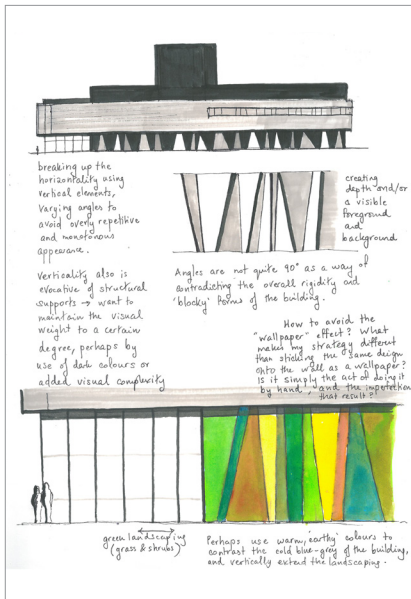 breaking up the
horizontality using
vertical elements,
varying angles to
avoid overly repetitive
and monotonous
appearance.
creating
depth and/or
a visible
foreground
and
background
Verticality also is
evocative of structural
supports → want to
maintain the visual
weight to a certain
degree, perhaps by
use of dark colours or
added visual complexity
Angles are not quite 90° as a way of
contradicting the overall rigidity and
'blocky' forms of the building.
How to avoid the
"wallpaper" effect? What
makes my strategy different
than sticking the same design
onto the wall as a wallpaper?
Is it simply the act of doing it
by hand, and the imperfections
that result?!
green landscaping
(grass & shrubs)
Perhaps use warm, 'earthy' colours to
contrast the cold blue-grey of the building,
and vertically extend the landscaping.